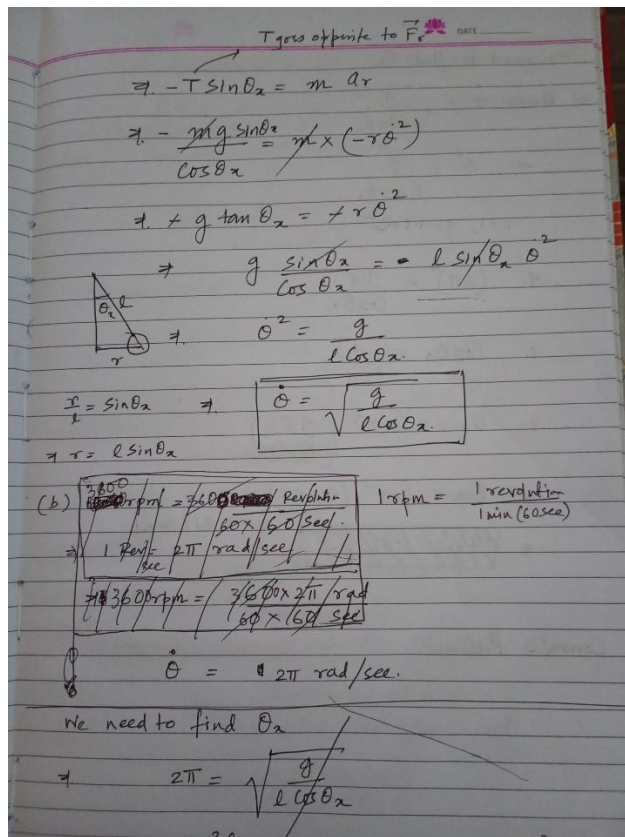 T goes opposite to F⃗r DATE
⇒ - T sinθx = m ar
⇒ - mg sinθx / cosθx = m × (-rθ̇²)
⇒ + g tan θx = + r θ̇²
⇒ g sinθx / cosθx = l sinθx θ̇²
θx l
r
⇒ θ̇² = g / l cosθx.
r/l = sinθx ⇒ θ̇ = √(g / l cosθx.)
⇒ r = l sinθx
(b) 3600 rpm = 3600 Revolution / 60 × 60 sec. 1 rpm = 1 revolution / 1 min (60sec)
⇒ 1 Rev/sec = 2π rad/sec
⇒ 3600rpm = 3600 × 2π rad / 60 × 60 sec
θ̇ = 2π rad/sec.
We need to find θx
⇒ 2π = √(g / l cosθx)